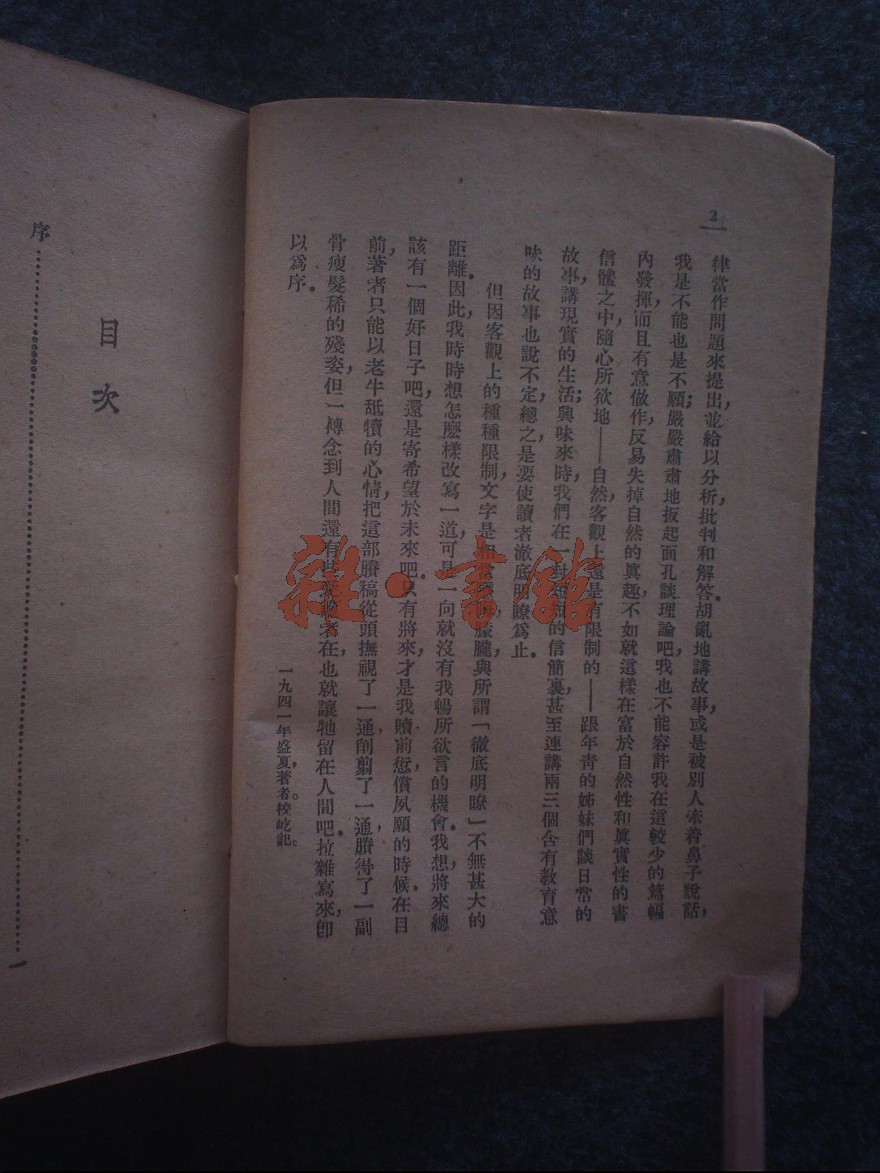 2
律當作問題來提出,並給以分析,批判和解答。胡亂地講故事,或是被別人牽着鼻子說話,
我是不能也是不願;嚴嚴肅肅地扳起面孔談理論吧,我也不能容許我在這較少的篇幅
內發揮,而且有意做作,反易失掉自然的眞趣,不如就這樣在富於自然性和眞實性的書
信體之中隨心所欲地——自然,客觀上還是有限制的——跟年靑的姊妹們談日常的
故事,講現實的生活;興味來時,我們在一封 的信簡裏,甚至連講兩三個含有敎育意
味的故事也說不定,總之,是要使讀者澈底明瞭爲止。
但因客觀上的種種限制,文字是相當 朦朧,與所謂「徹底明瞭」不無甚大的
距離。因此,我時時想怎麽樣改寫一道,可是一向就沒有我暢所欲言的機會。我想,將來總
該有一個好日子吧,還是寄希望於未來吧。只有將來,才是我贖前愆償夙願的時候。在目
前,著者只能以老牛舐犢的心情,把這部賸稿從頭撫視了一通,削剪了一通,賸得了一副
骨瘦髮稀的殘姿,但一轉念到人間還有些 者在,也就讓牠留在人間吧。拉雜寫來,卽
以爲序。
一九四一年盛夏,著者校訖記。
目次
序 一
雜·書館